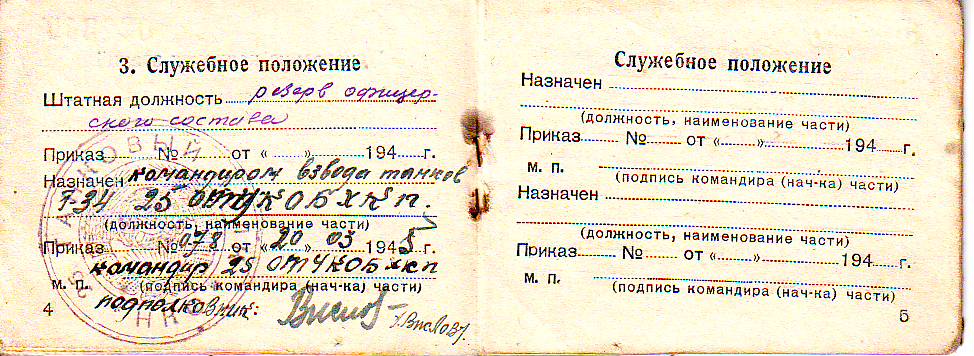 3. Служебное положение
Штатная должность резерв офицер-
ского состава
Приказ № от « » 194 г.
Назначен командиром взвода танков
Т-34 25
(должность, наименование части)
Приказ № 078 от « 20 » 03 1945 г.
командир 25
м. п. (подпись командира (нач-ка) части)
подполковник:
4
Служебное положение
Назначен
(должность, наименование части)
Приказ № от « » 194 г.
м. п.
(подпись командира (нач-ка) части)
Назначен
(должность, наименование части)
Приказ № от « » 194 г.
м. п.
(подпись командира (нач-ка) части)
5